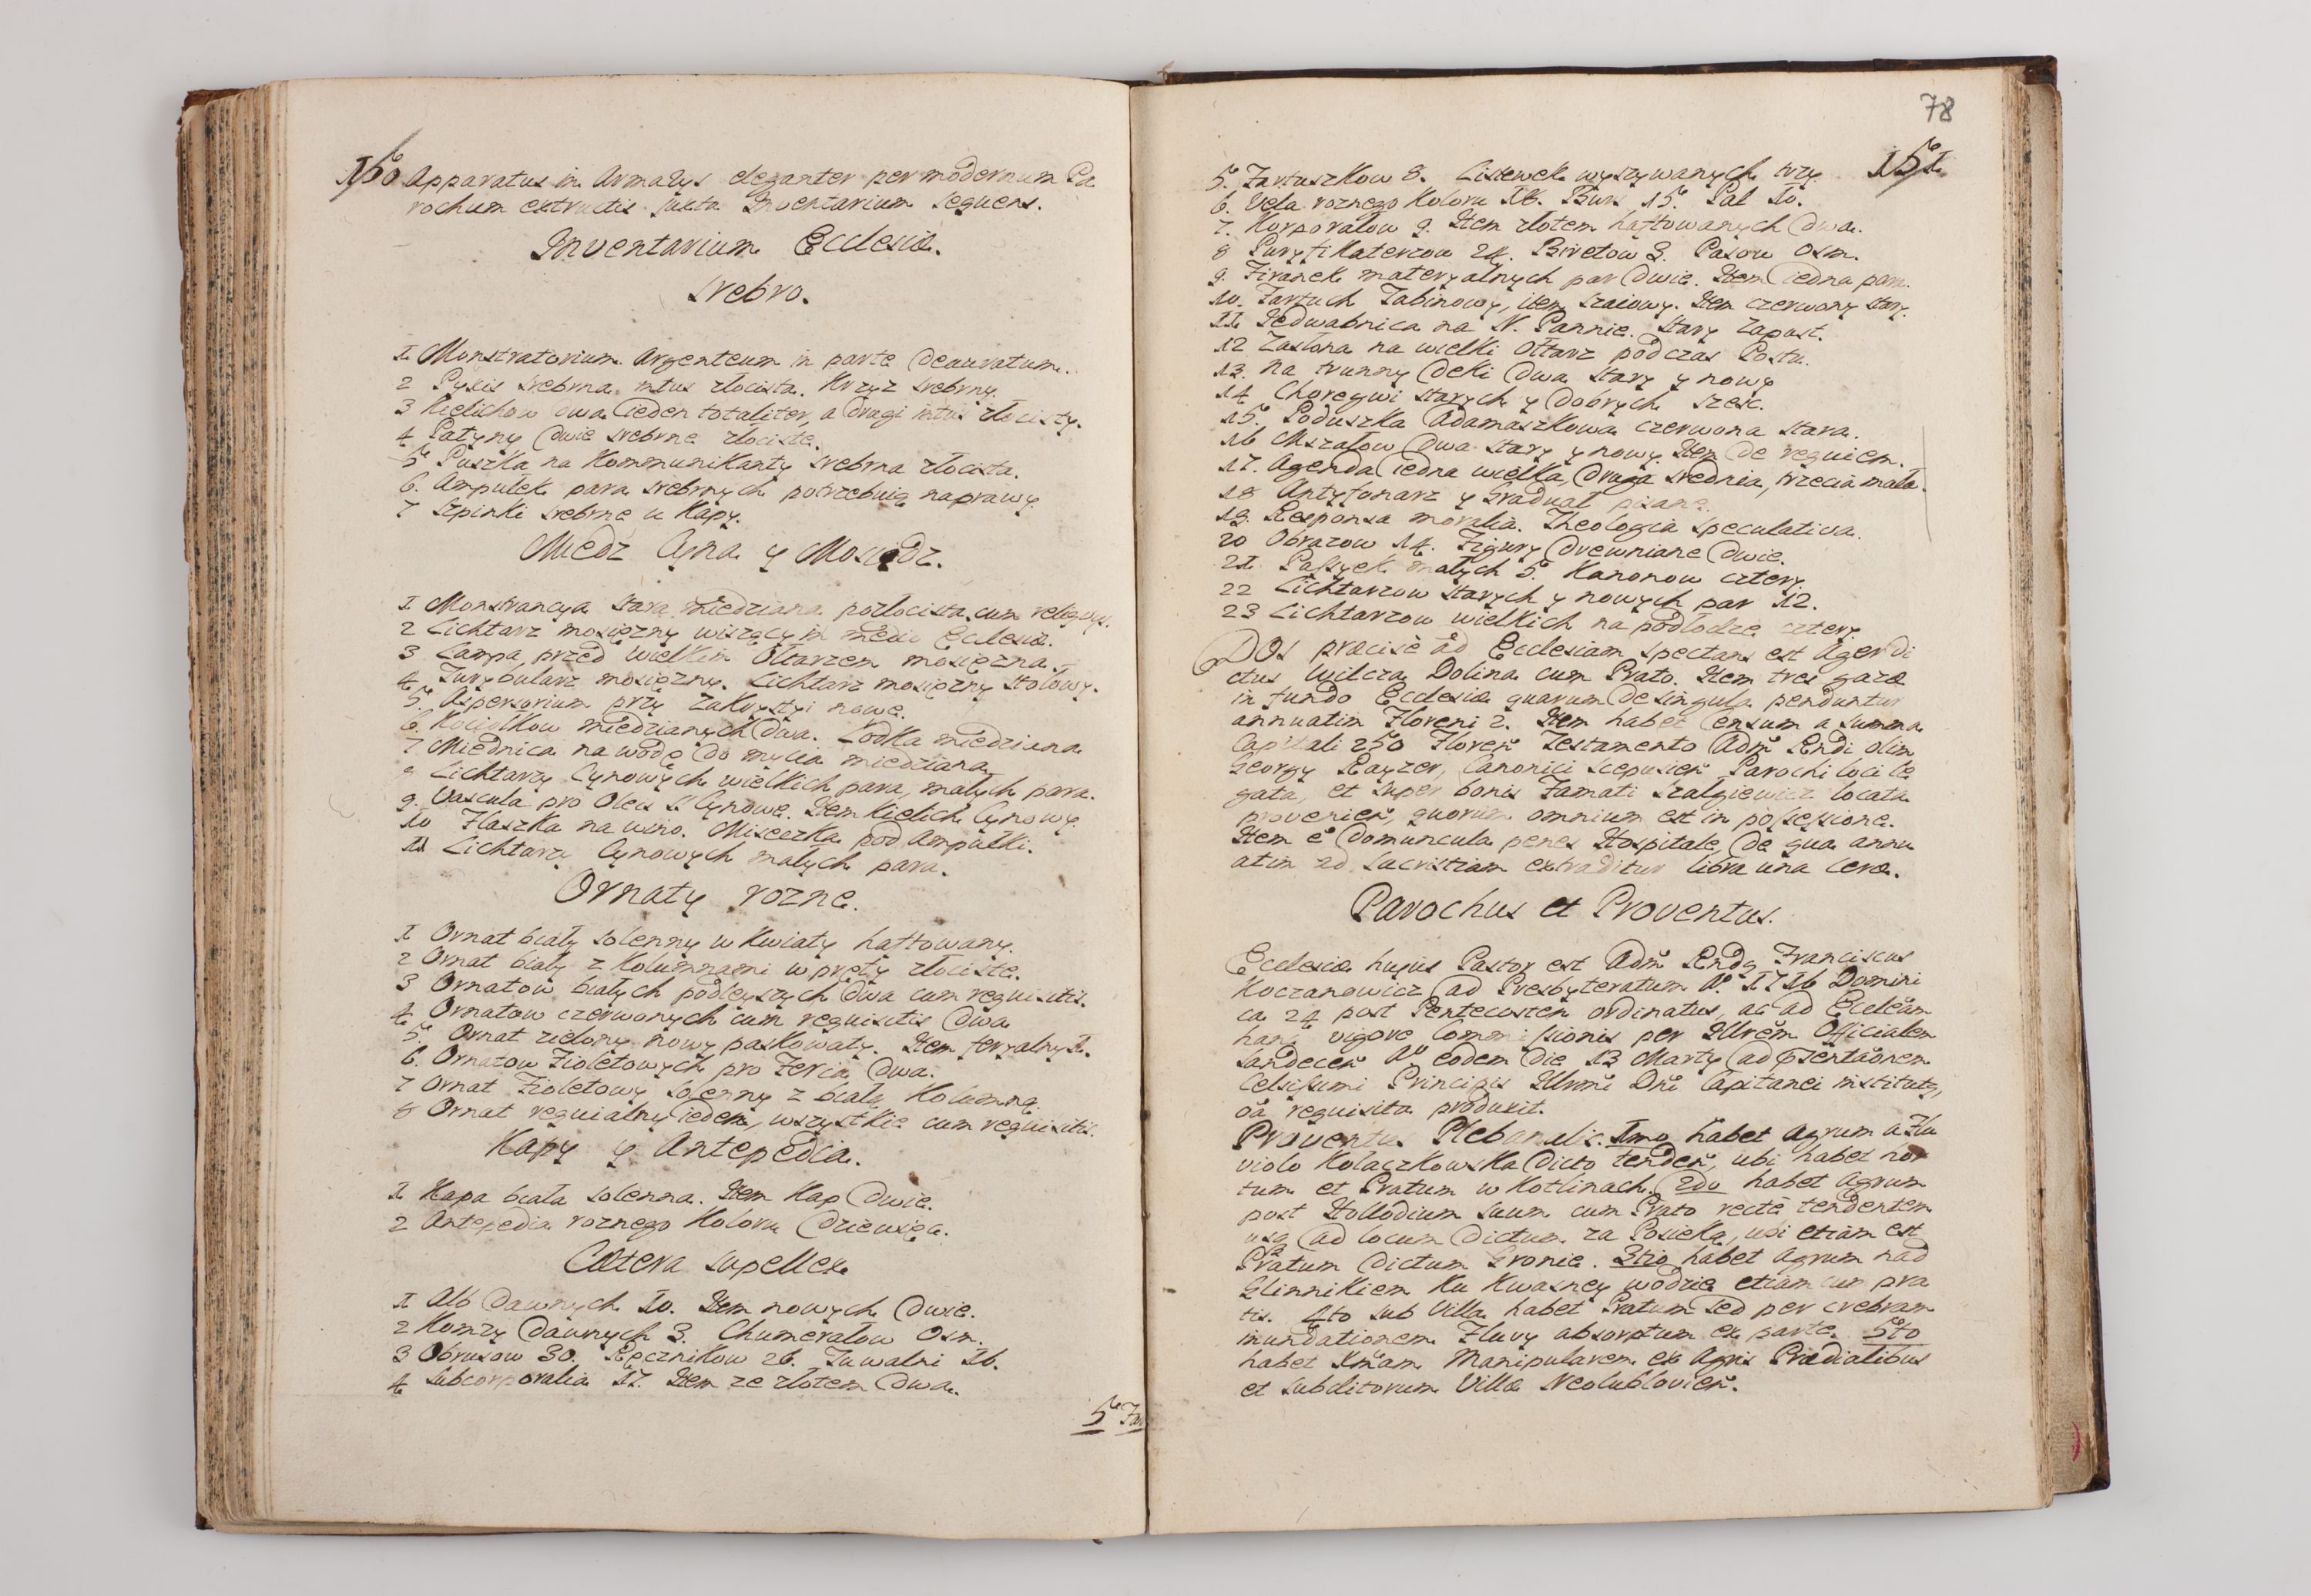 150
Apparatus in Armarys eleganter per modernum Pa
rochum extructis juxta Inventarium sequens.
Inventarium Ecclesiæ.
Srebro.
1 Monstratorium Argenteum in parte deauratum.
2 Pyxis srebrna intus złocista. Krzyz srebrny.
3 Kielichow dwa ieden totaliter, a drugi intus złocisty.
4 Patyny dwie srebrne złociste.
5 Puszka na Kommunikanty srebrna złocista.
6. Ampułek para srebrnych potrzebuią naprawy.
7 Szpinki srebrne u Kapy.
Miedz Cyna y Mosiądz.
1 Monstrancya stara miedziana pozłocista cum religuys.
2 Lichtarz mosięzny wiszący in medio Ecclesiæ.
3 Lampa przed wielkim Ołtarzem mosięzna.
4 Turybularz mosięzny. Lichtarz mosięzny stołowy.
5. Aspersorium przy Zakrystyi nowe.
6. Kociołkow miedzianych dwa. Łodka miedziana
7 Miednica na wodę do mycia miedziana
8 Lichtarzy Cynowych wielkich para, małych para.
9. Vascula pro Oleis S. Cynowe. Item Kielich Cynowy.
10 Flaszka na wino. Miseczka pod Ampułki.
11 Lichtarzy Cynowych małych para.
Ornaty rozne.
1 Ornat biały solenny w Kwiaty haftowany.
2 Ornat biały z Kolumnami w pręty złociste.
3 Ornatow białych podleyszych dwa cum requisitis.
4 Ornatow czerwonych cum requisitis dwa
5. Ornat zielony nowy paskowaty. Item feryalny 1.
6. Ornatow Fioletowych pro Feria dwa.
7 Ornat Fioletowy solenny z białą Kolumną
8 Ornat requialny ieden, wszystkie cum requisitis.
Kapy y Antepedia.
1 Kapa biała solenna. Item Kap dwie.
2 Antepedia roznego Koloru dziewięc.
Cætera supellex
1 Alb dawnych 10. Item nowych dwie.
2 Komzy dawnych 3. Chumerałow osm.
3 Obrusow 30. Ręcznikow 26. Tuwalni 16.
4 Subcorporalia 17. Item ze złotem dwa.
5 Far
78
151
5. Fartuszkow 8. Listewek wyszywanych trzy
6. Vela roznego Koloru 16. Burs 15. Pal 10.
7. Korporałow 9. Item złotem haftowanych dwa.
8 Puryfikaterzow 24. Biretow 3. Pasow osm.
9. Firanek materyalnych par dwie. Item iedna para.
10. Fartuch Tabinowy, item szaiowy. Item czerwony stary.
11 Jedwabnica na N. Pannie. Stary Zapast.
12 Zasłona na wielki Ołtarz podczas Postu.
13. Na trunny deki dwa stary y nowy
14 Choręgwi starych y dobrych szesc.
15. Poduszka Adamaszkowa czerwona stara.
16 Mszałow dwa stary y nowy. Item de requiem.
17. Agenda iedna wielka, druga srednia, trzecia mała.
18 Antyfonarz y Graduał pisane.
19. Responsa moralia. Theologia Speculativa.
20 Obrazow 14. Figury drewniane dwie.
21 Passyek małych 5. Kanonow cztery.
22 Lichtarzow starych y nowych par 12.
23 Lichtarzow wielkich na podłodze cztery.
Dos præcisè ad Ecclesiam spectans est Ager di
ctus Wilcza Dolina cum Prato. Item tres gazæ
in fundo Ecclesiæ quarum de singula penduntur
annuatim Floreni 2. Item habet Censum a summa
Capitali 250 Floren Testamento Adm Rndi olim
Georgy Rayzer, Canonici Scepusien Parochi loci le
gata, et super bonis Famati Szalgiewicz locata
provenien, quorum omnium est in possessione.
Item e domuncula penes Hospitale, de qua annu
atim ad Sacristiam extraditur libra una Ceræ.
Parochus et Proventus.
Ecclesiæ huius Pastor est Adm Rndq Franciscus
Koczanowicz ad Presbyteratum Ao 1716 Domini
ca 24 post Pentecosten ordinatus, ac ad Ecclëam
hanc vigore Commissionis per Illrem Officialem
Sandecen Ao eodem die 13 Marty ad pzentaonem
Celsissimi Principis Illmi Dni Capitanei institutq,
oa requisita produxit.
Proventus Plebanalis. 1mo habet Agrum a Flu
violo Kolaczkowska dicto tenden, ubi habet hor
tum et Pratum w Kotlinach. 2do habet Agrum
post Hollodium suum cum Prato recte tendentem
usq ad locum dictum za Posieką, ubi etiam est
Pratum dictum Gronie. 3tio habet Agrum nad
Glinnikiem Ku Kwasney wodzie etiam cum pra
tis. 4to sub Villa habet Pratum sed per crebram
inundationem Fluvy absorptum ex parte. 5to
habet Xmam Manipularem ex Agris Prædialibus
et subditorum Villæ Neolublovien.